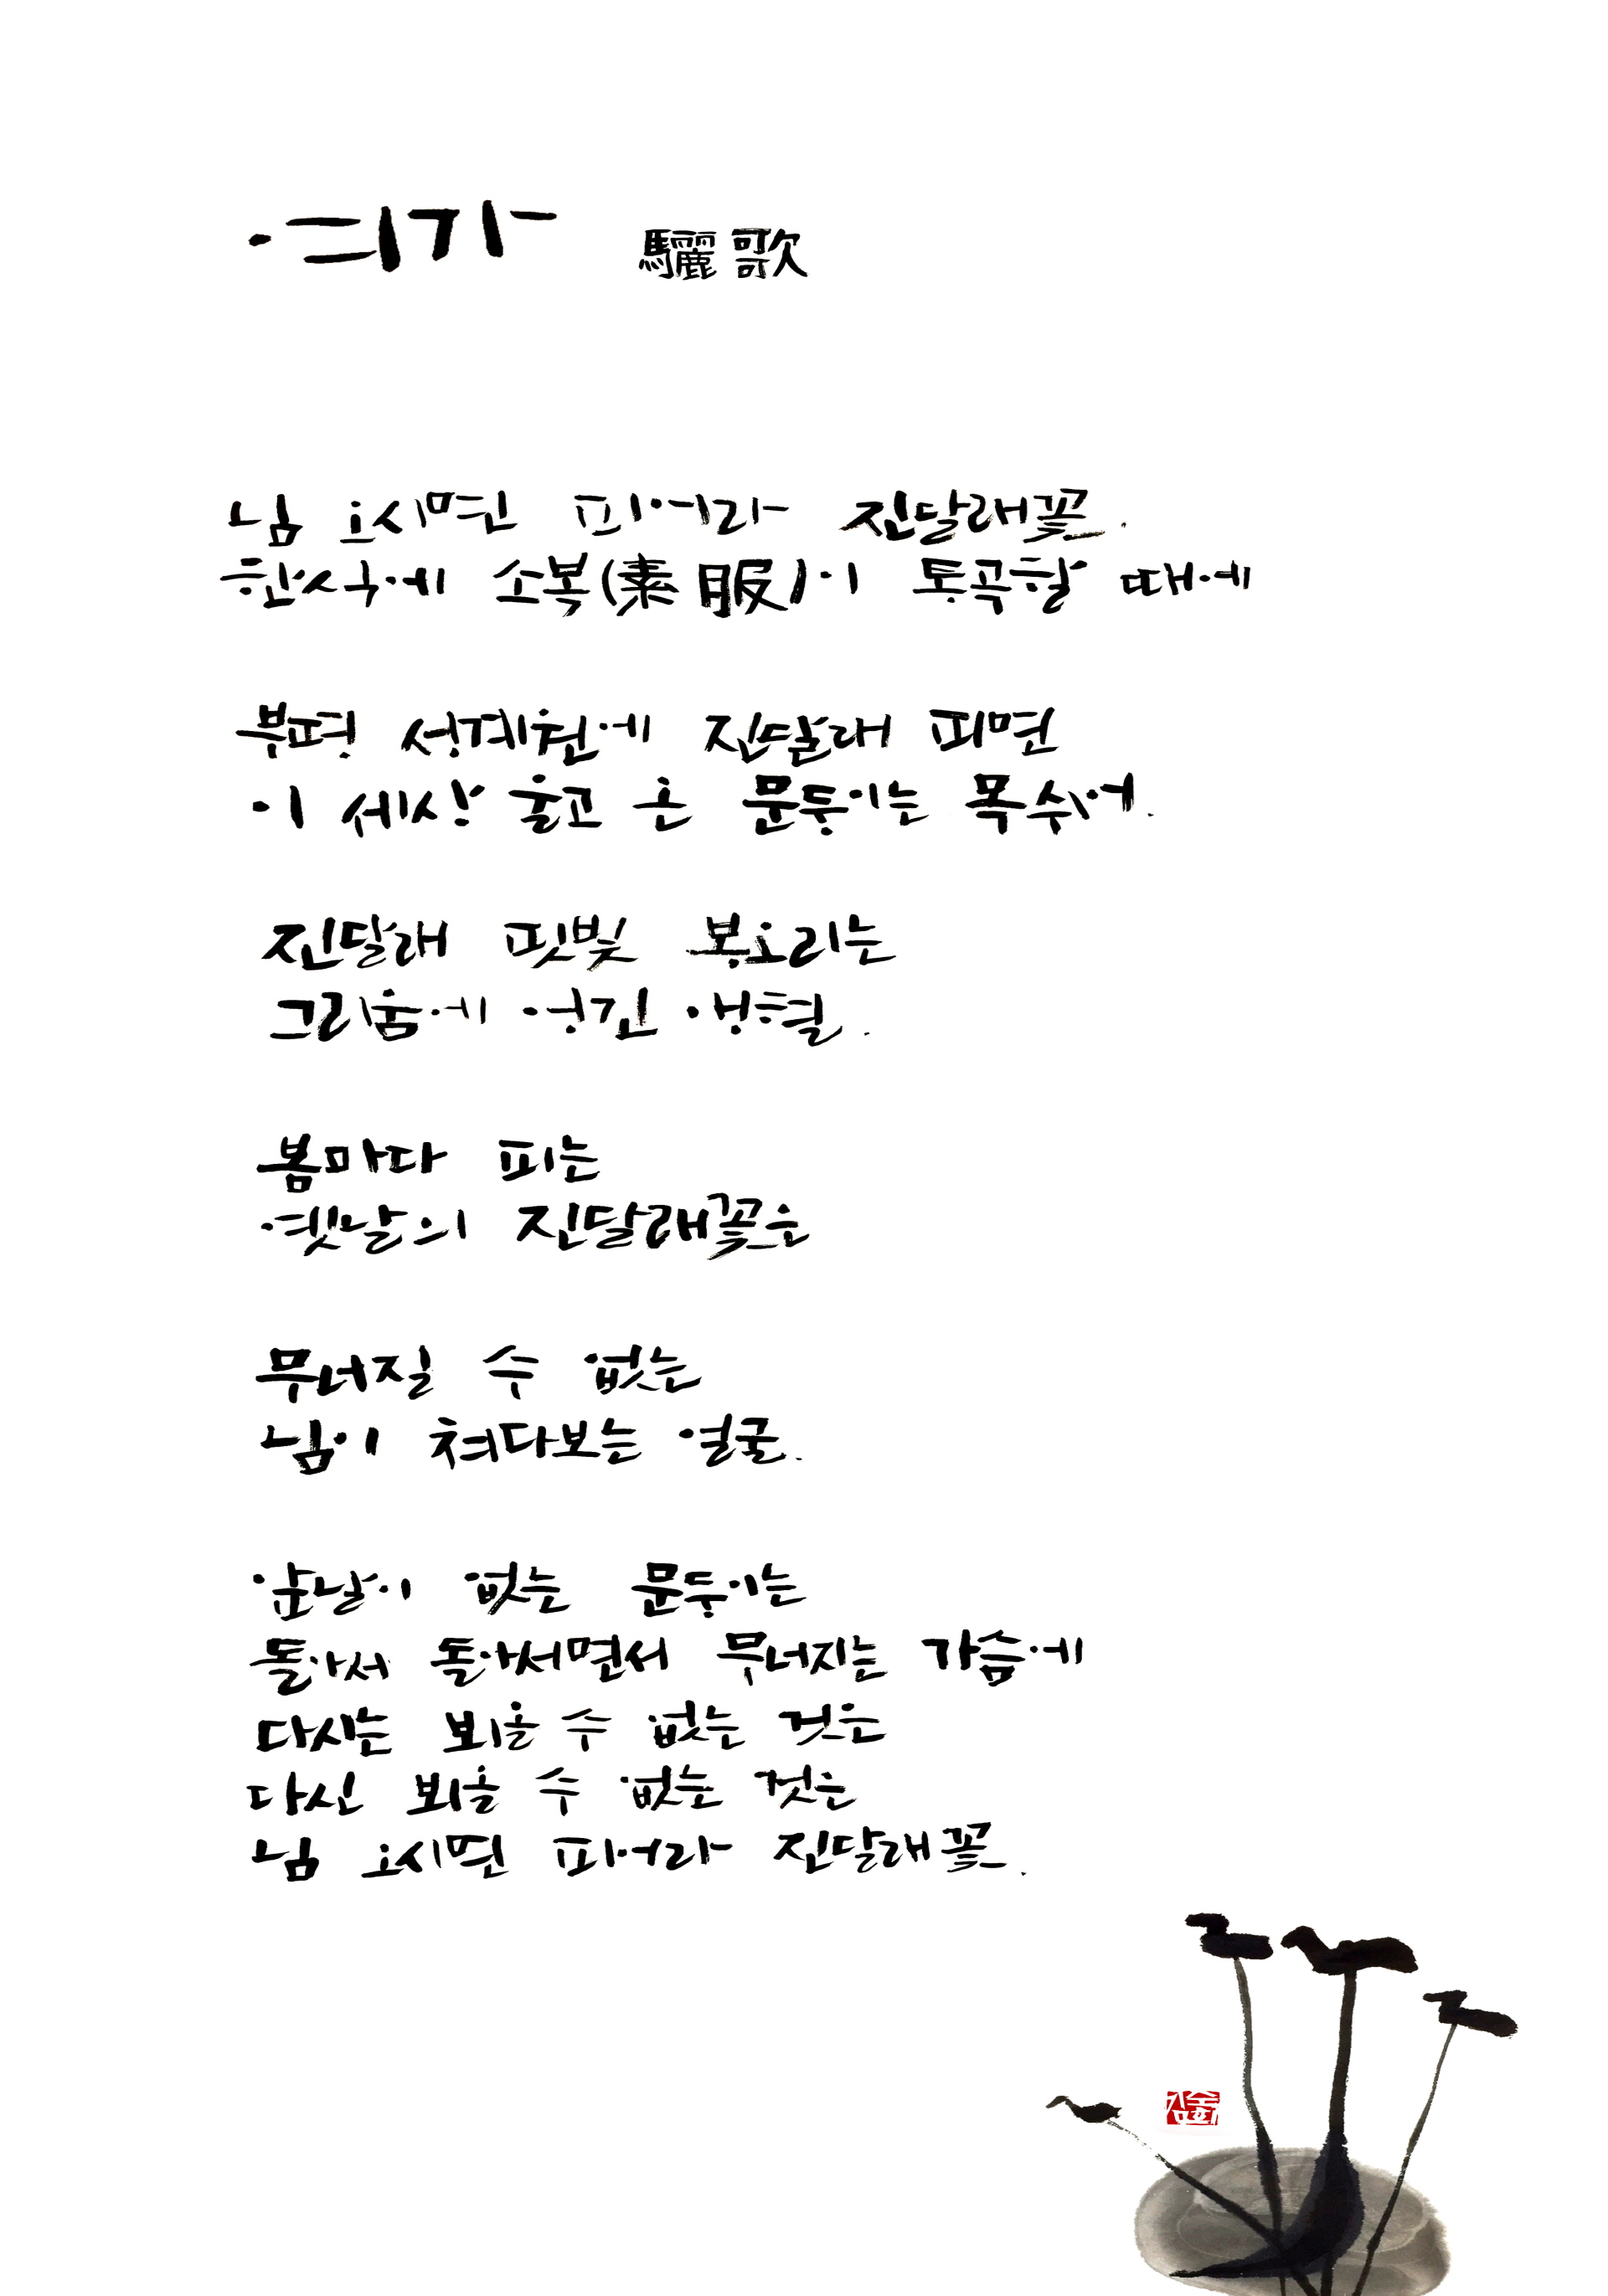 여가 驪歌
님 오시면 피어라 진달래꽃.
한식에 소복(素服)이 통곡할 때에
부평 성계원에 진달래 피면
이 세상 울고 온 문둥이는 목쉬어.
진달래 핏빛 봉오리는
그리움에 엉긴 앵혈.
봄마다 피는
옛날의 진달래꽃은
무너질 수 없는
님이 쳐다보는 얼굴.
앞날이 없는 문둥이는
돌아서 돌아서면서 무너지는 가슴에
다시는 뵈올 수 없는 것은
다신 뵈올 수 없는 것은
님 오시면 피어라 진달래꽃.